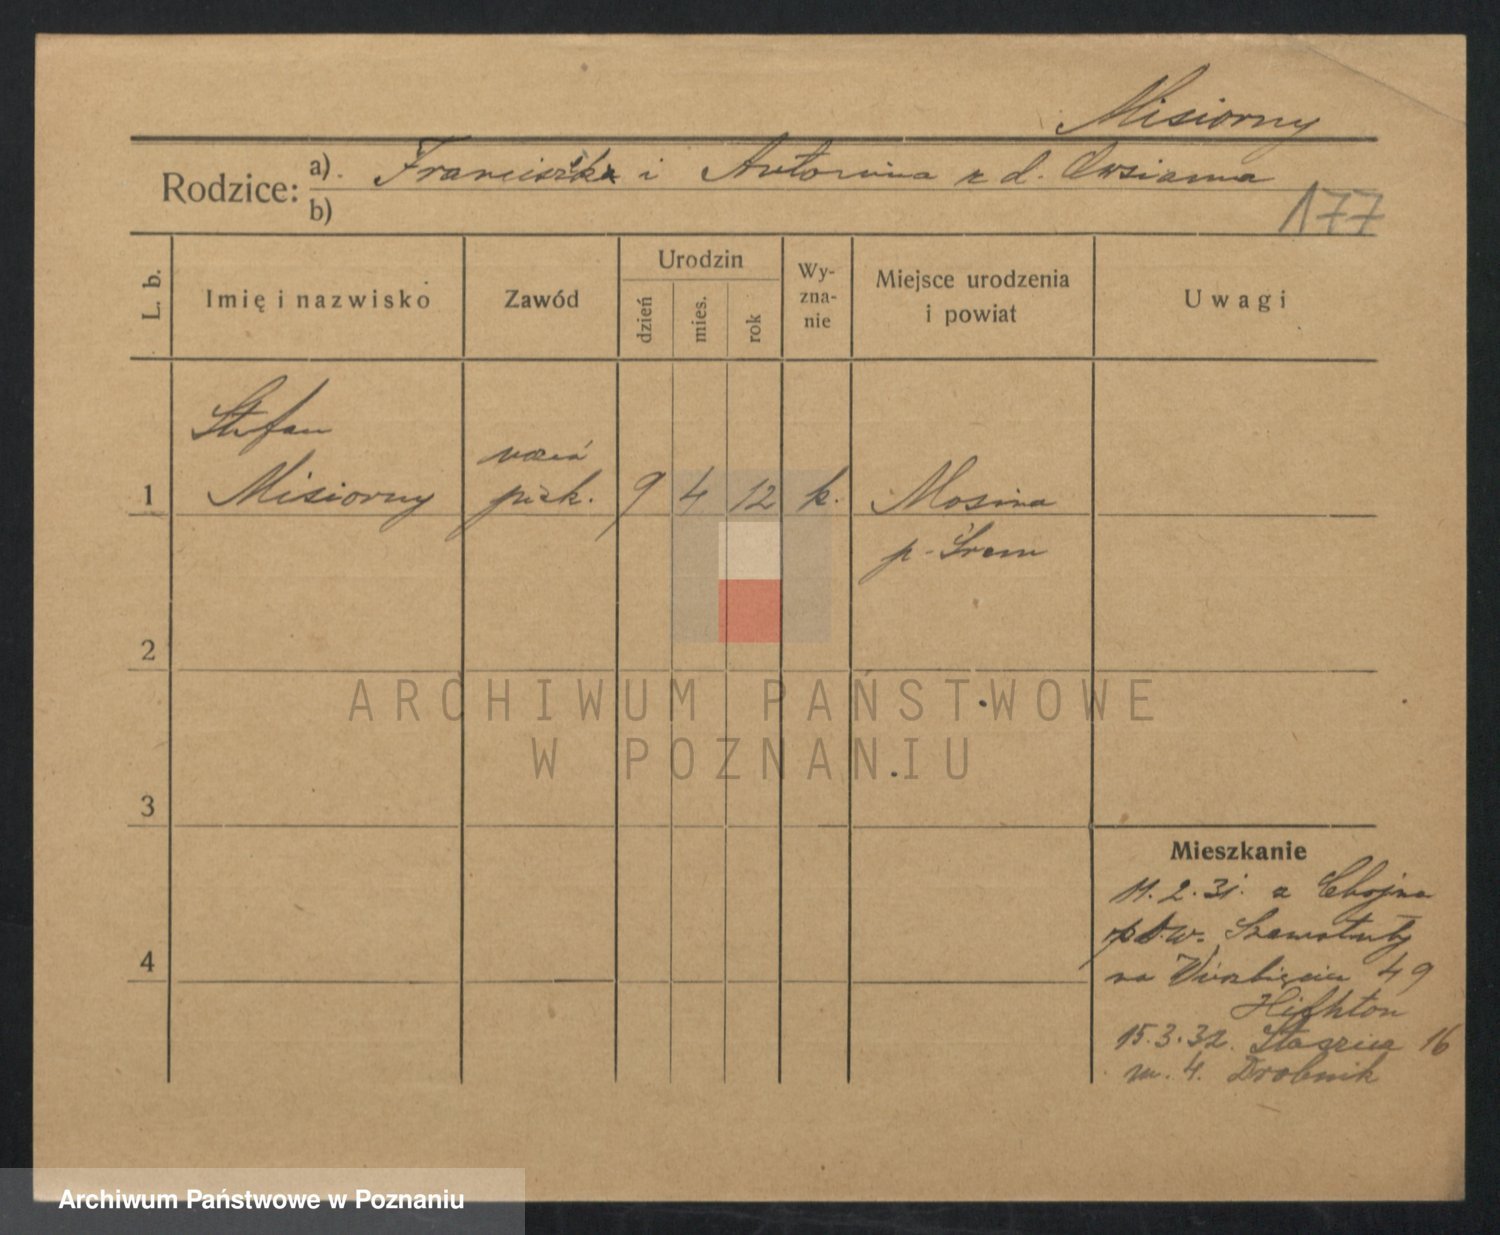 Misiorny
Rodzice: a). Franciszka i Antonina z d. Owsianna
b)
177
L. b.
Imię i nazwisko
Zawód
Urodzin
dzień
mies.
rok
Wy-
zna-
nie
Miejsce urodzenia
i powiat
Uwagi
Stefan
1 Misiorny
piek. 9 4 12 k. Mosina
p. Śrem
2
ARCHIWUM PAŃSTWOWE
W POZNANIU
3
Mieszkanie
11.2.31. z Chojna
Szamotuły
4
na Wierzbięcice 49
15.3.32. Staszica 16
m. 4. Drobnik
Archiwum Państwowe w Poznaniu